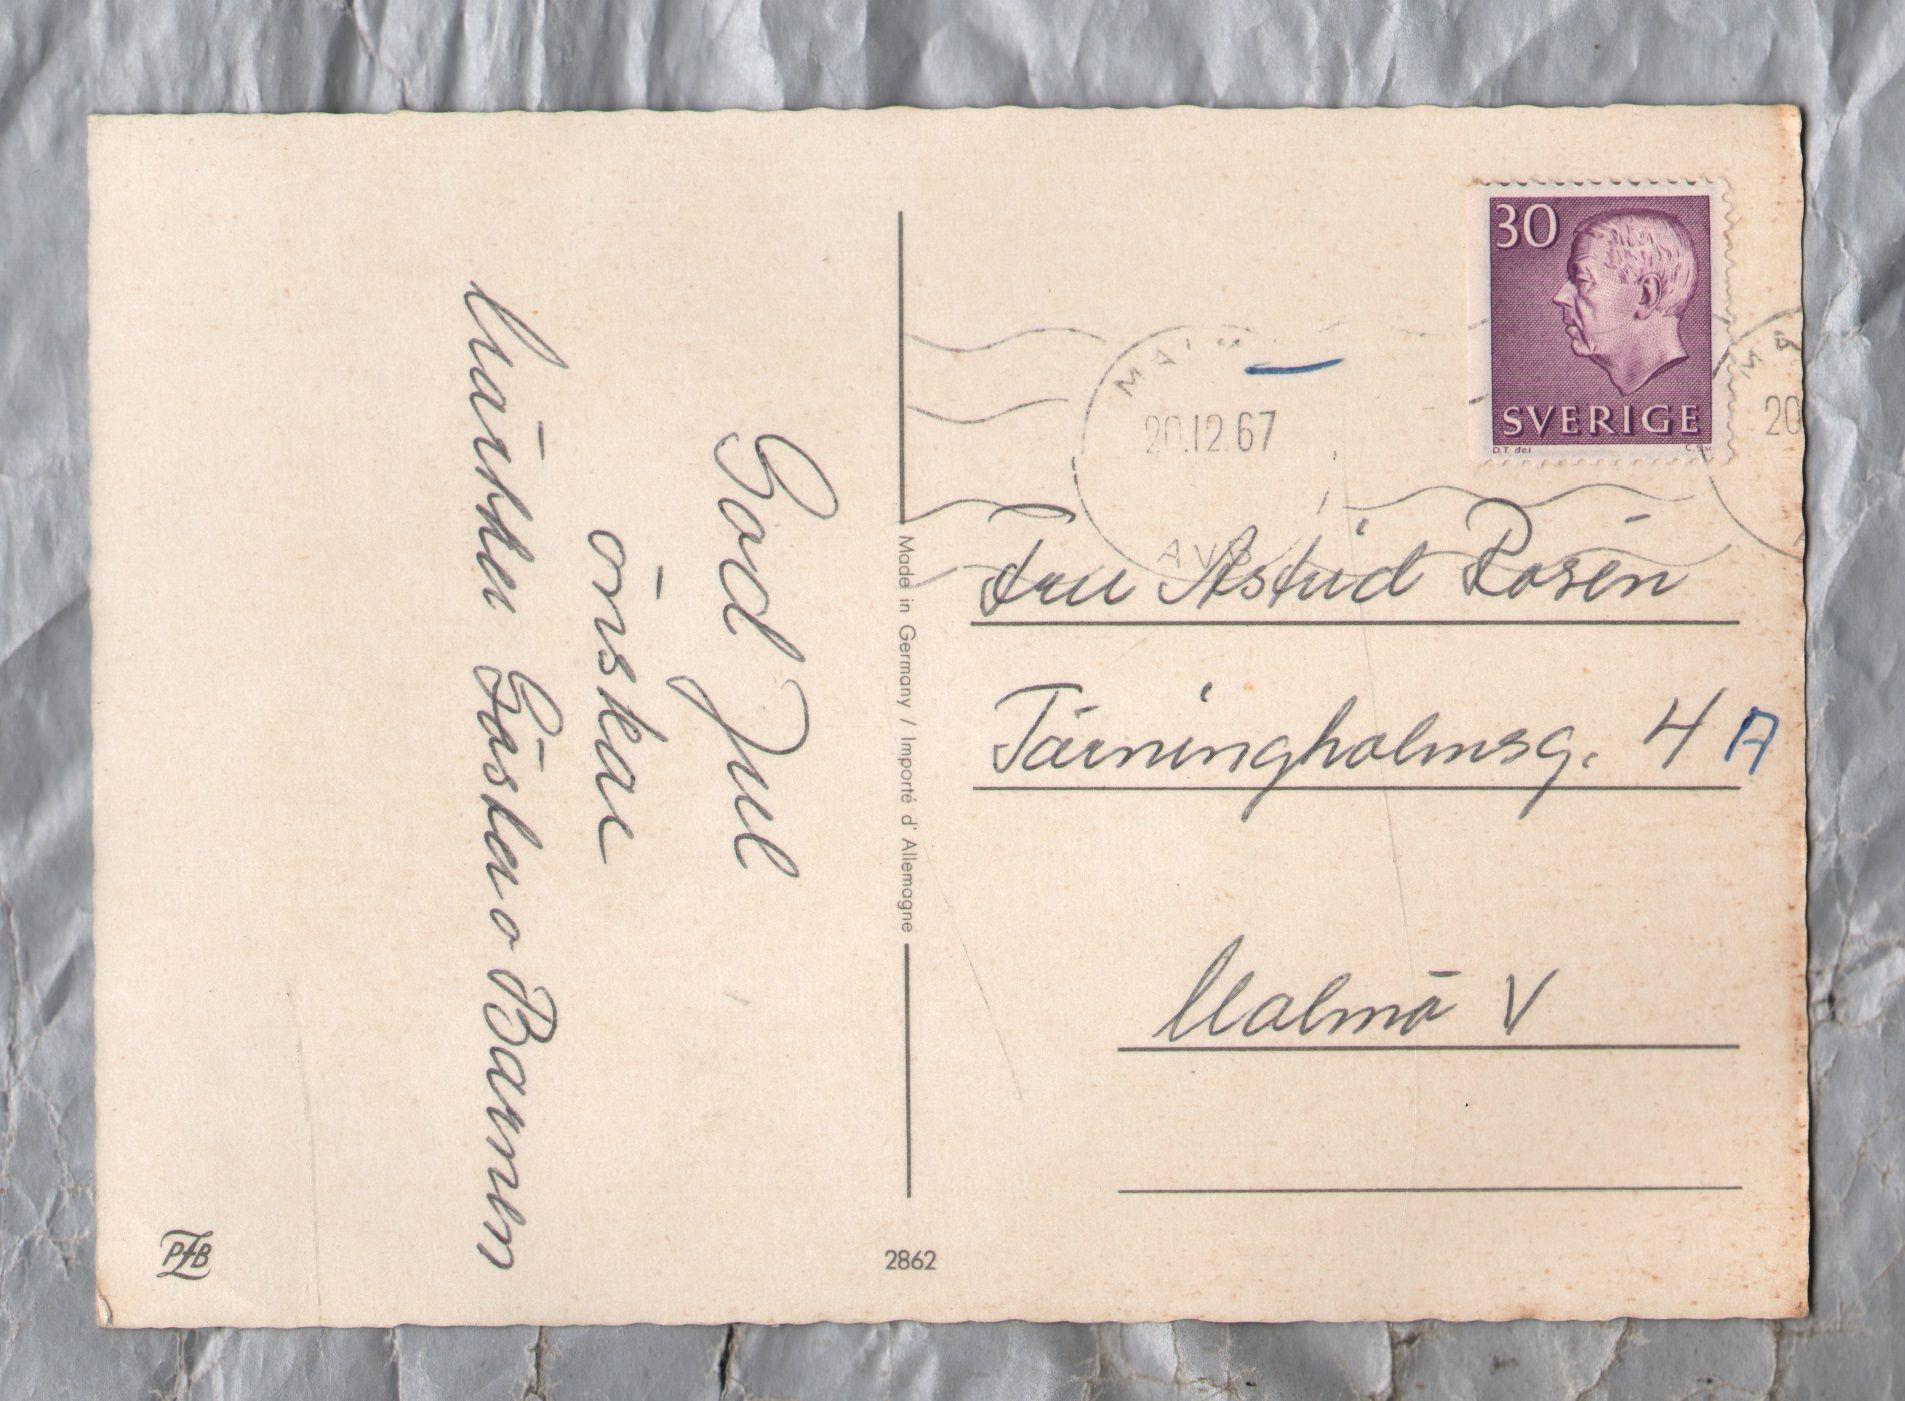 God Jul
önskar
Märtha Gösta o Barnen
Made in Germany / Importé d' Allemagne
30
SVERIGE
D.T. del
MALM
20.12.67
AVG
20
Fru Astrid Rosén
Tärningholmsg. 4 A
Malmö V
PZB
2862